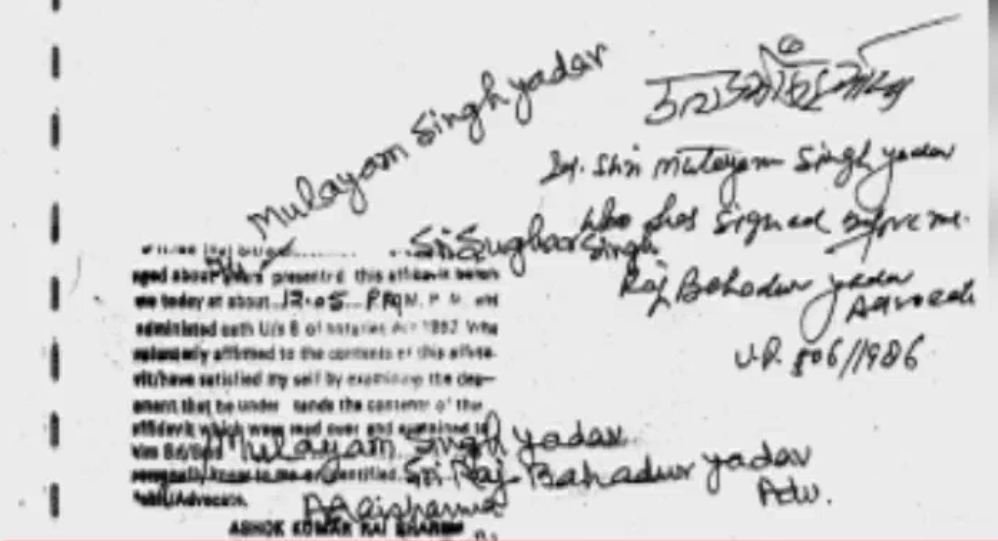 Mulayam Singh Yadav
Shri Mulayam Singh Yadav
who has signed before me.
Sri Sughar Singh
Raj Bahadur Yadav
Advocate
U.P. 806/1986
aged about years presented this affidavit before
me today at about 12.05 P.M. and
admi oath U/s 8 of notaries Act 1952 Who
voluntarily affirmed to the contents of this affida-
vit/have satisfied my self by examining the dep-
onent that he under sands the contents of the
affidavit which were read over and explained to
him
Mulayam Singh Yadav
personally know to me or identified Sri Raj Bahadur Yadav
Public/Advocate. Adv.
ASHOK KUMAR RAI SHARMA